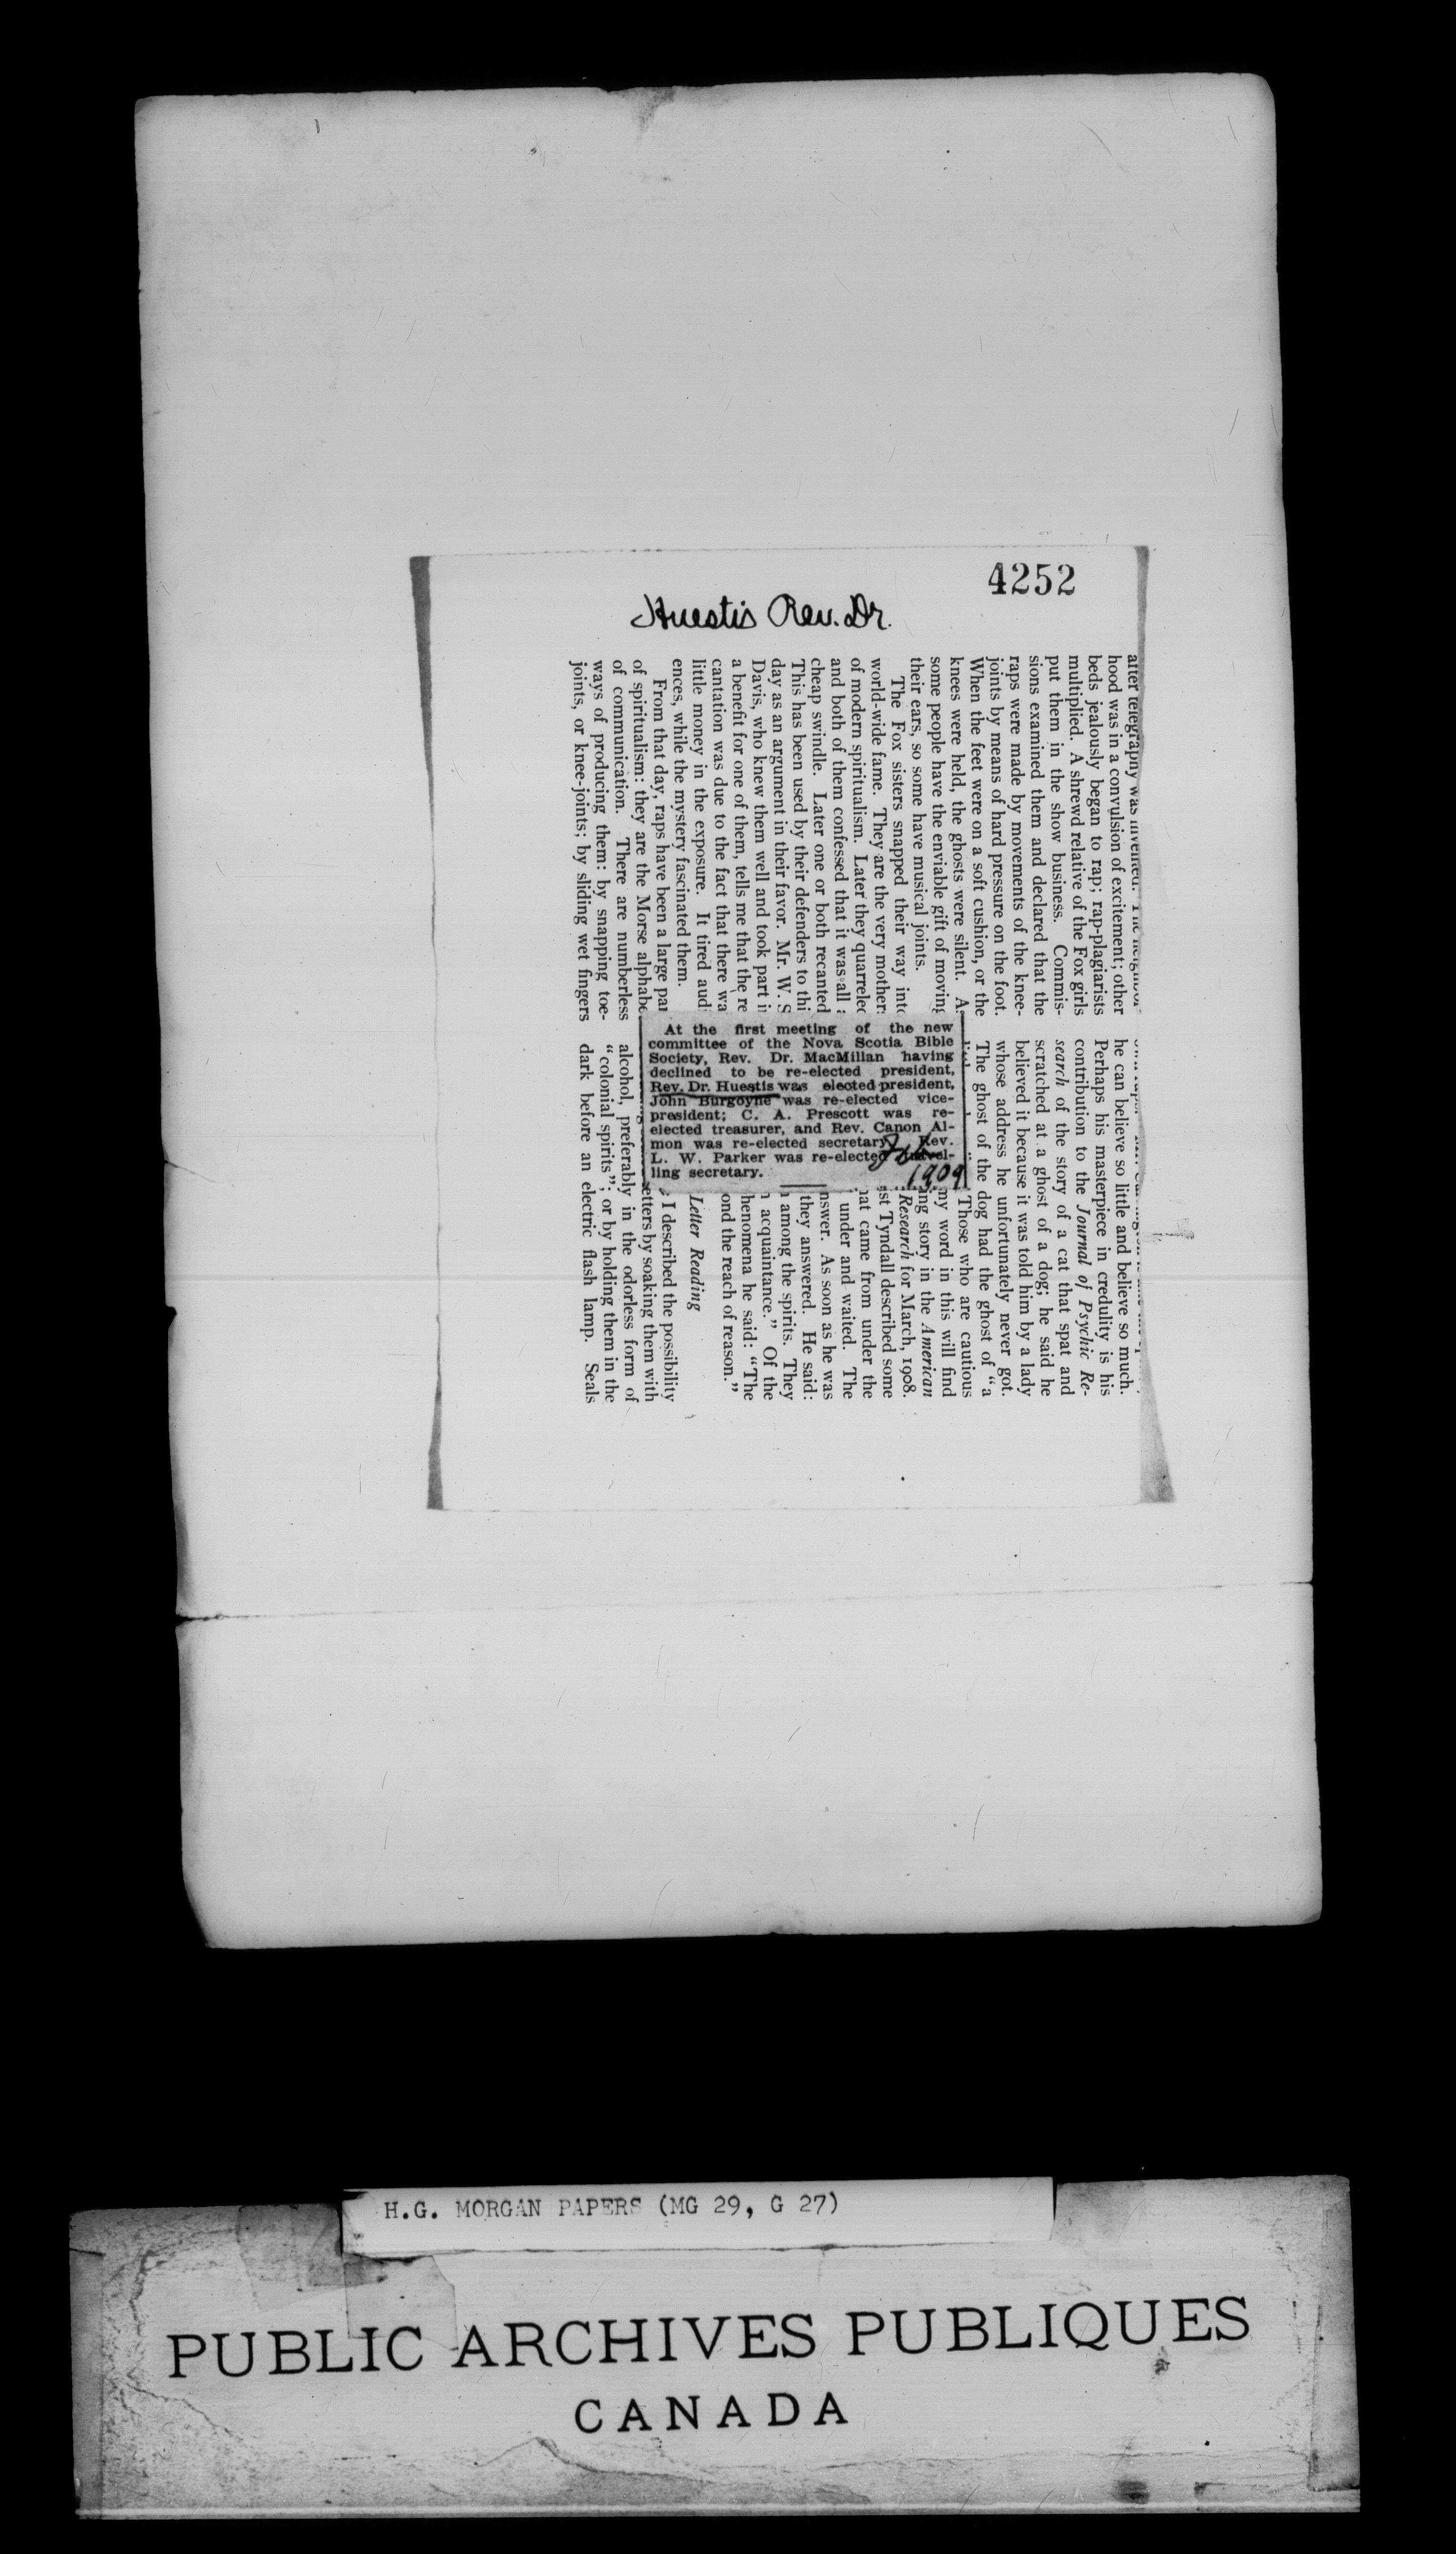 4252
Huestis Rev. Dr.
after telegraphy was invented. The neighbor-
hood was in a convulsion of excitement; other
beds jealously began to rap; rap-plagiarists
multiplied. A shrewd relative of the Fox girls
put them in the show business. Commis-
sions examined them and declared that the
raps were made by movements of the knee-
joints by means of hard pressure on the foot.
When the feet were on a soft cushion, or the
knees were held, the ghosts were silent. As
some people have the enviable gift of moving
their ears, so some have musical joints.
The Fox sisters snapped their way into
world-wide fame. They are the very mothers
of modern spiritualism. Later they quarreled
and both of them confessed that it was all a
cheap swindle. Later one or both recanted
This has been used by their defenders to thi
day as an argument in their favor. Mr. W. S
Davis, who knew them well and took part i
a benefit for one of them, tells me that the re
cantation was due to the fact that there wa
little money in the exposure. It tired audi
ences, while the mystery fascinated them.
From that day, raps have been a large par
of spiritualism: they are the Morse alphabe
of communication. There are numberless
ways of producing them: by snapping toe-
joints, or knee-joints; by sliding wet fingers
he can believe so little and believe so much.
Perhaps his masterpiece in credulity is his
contribution to the Journal of Psychic Re-
search of the story of a cat that spat and
scratched at a ghost of a dog; he said he
believed it because it was told him by a lady
whose address he unfortunately never got.
The ghost of the dog had the ghost of "a
Those who are cautious
my word in this will find
ing story in the American
Research for March, 1908.
st Tyndall described some
hat came from under the
under and waited. The
nswer. As soon as he was
they answered. He said:
among the spirits. They
acquaintance." Of the
henomena he said: "The
ond the reach of reason."
Letter Reading
I described the possibility
etters by soaking them with
alcohol, preferably in the odorless form of
"colonial spirits"; or by holding them in the
dark before an electric flash lamp. Seals
At the first meeting of the new
committee of the Nova Scotia Bible
Society, Rev. Dr. MacMillan having
declined to be re-elected president,
Rev. Dr. Huestis was elected president,
John Burgoyne was re-elected vice-
president; C. A. Prescott was re-
elected treasurer, and Rev. Canon Al-
mon was re-elected secretary. Rev.
L. W. Parker was re-elected travel-
ling secretary.
Feb
1909
H.G. MORGAN PAPERS (MG 29, G 27)
PUBLIC ARCHIVES PUBLIQUES
CANADA